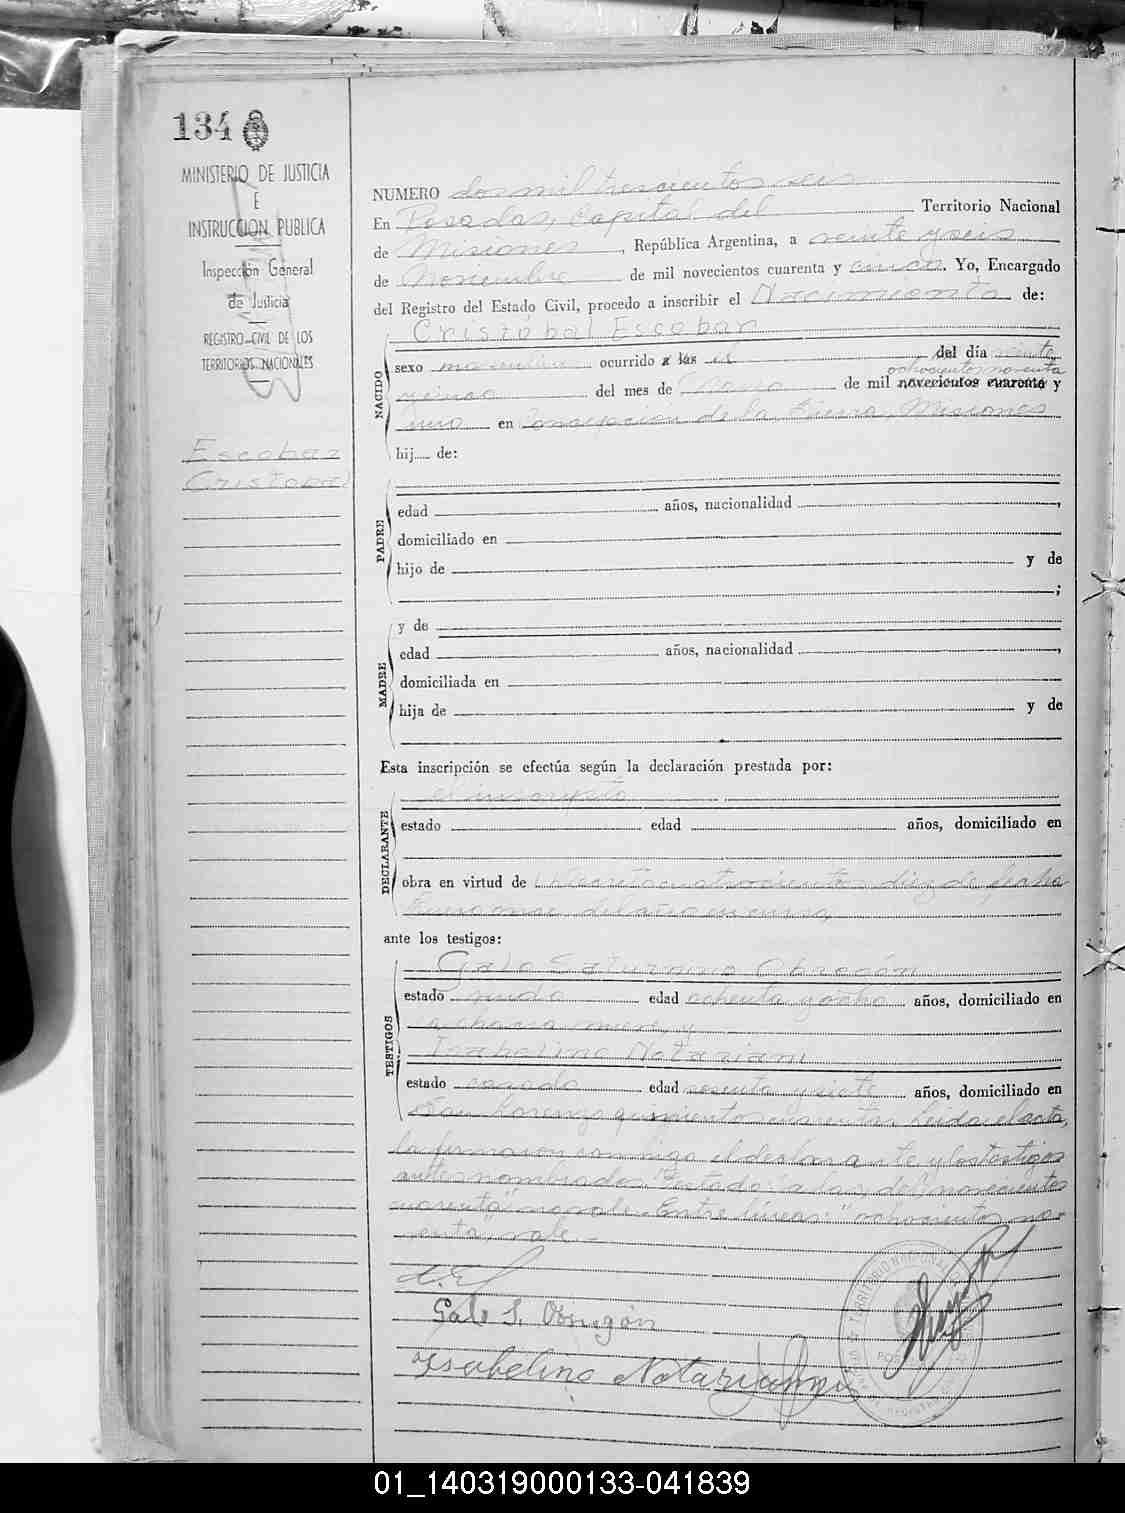 134
MINISTERIO DE JUSTICIA
E
INSTRUCCION PUBLICA
Inspección General
de Justicia
REGISTRO CIVIL DE LOS
TERRITORIOS NACIONALES
Escobar
Cristobal
NUMERO dos mil trescientos seis
En Posadas, Capital del Territorio Nacional
de Misiones, República Argentina, a veinte y seis
de Noviembre de mil novecientos cuarenta y cinco. Yo, Encargado
del Registro del Estado Civil, procedo a inscribir el Nacimiento de:
NACIDO
Cristóbal Escobar
sexo masculino ocurrido a las el del día veinte
ochocientos noventa
del mes de de mil novecientos cuarenta y
uno en Concepcion de la Sierra, Misiones
hij de:
PADRE
edad años, nacionalidad ,
domiciliado en
hijo de y de
;
MADRE
y de
edad años, nacionalidad ,
domiciliada en
hija de y de
Esta inscripción se efectúa según la declaración prestada por:
DECLARANTE
el inscripto
estado edad años, domiciliado en
obra en virtud de cuatrocientos diez de fecha
del año en curso,
ante los testigos:
TESTIGOS
Galo Saturnino Obregón
estado viudo edad ochenta y ocho años, domiciliado en
nueve, y
Isabelino Notariani
estado casado edad sesenta y siete años, domiciliado en
San Lorenzo quinientos cuarenta. Leida el acta,
la firmaron conmigo el declarante y los testigos
antes nombrados. Testado: "a las, del, novecientos
cuarenta" no vale. Entre líneas: "ochocientos no-
venta", vale.-
C. E
Galo S. Obregón
Isabelino Notarianni
TERRITORIO NACIONAL
01_140319000133-041839